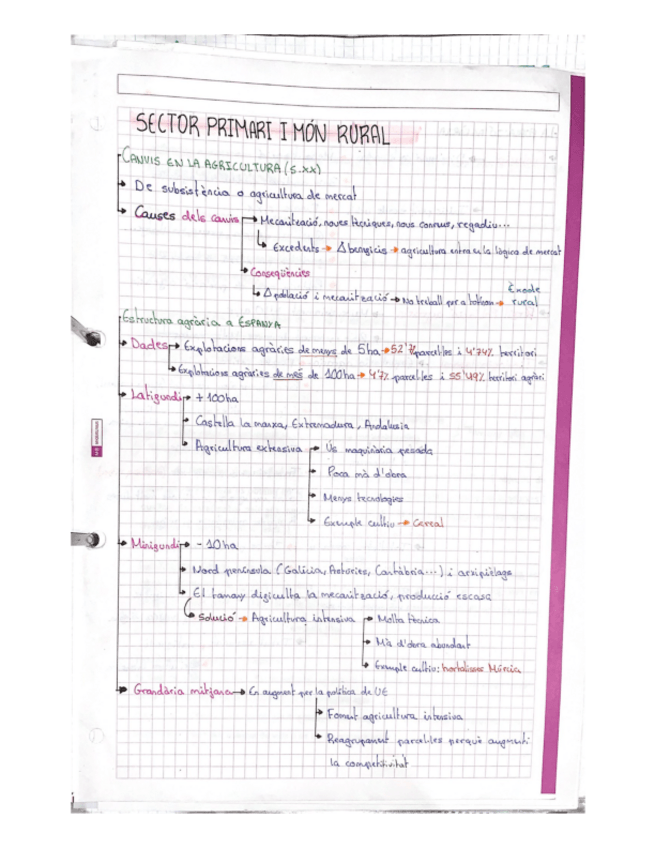 SECTOR PRIMARI I MÓN RURAL
CANVIS EN LA AGRICULTURA (s.XX)
De subsistència a agricultura de mercat
Causes dels canvis → Mecanització, noves tècniques, nous conreus, regadiu...
Excedents → Δ beneficis → agricultura entra en la lògica de mercat
Conseqüències
Δ població i mecanització → No treball per a tothom → Èxode rural
Estructura agrària a ESPANYA
Dades → Explotacions agràries de menys de 5ha → 52'% parcel·les i 4'74% territori
Explotacions agràries de més de 100ha → 4'7% parcel·les i 55'49% territori agrari
Latifundi → + 100ha
Castella la manxa, Extremadura, Andalusia
Agricultura extensiva → Ús maquinària pesada
Poca mà d'obra
Menys tecnologies
Exemple cultiu → Cereal
Minifundi → - 10ha
Nord península (Galicia, Asturies, Cantàbria...) i arxipèlags
El tamany dificulta la mecanització, producció escasa
Solució → Agricultura intensiva → Molta tècnica
Mà d'obra abundant
Exemple cultiu: hortalisses Múrcia
Grandària mitjana → En augment per la política de UE
Foment agricultura intensiva
Reagrupament parcel·les perquè augmenti
la competitivitat